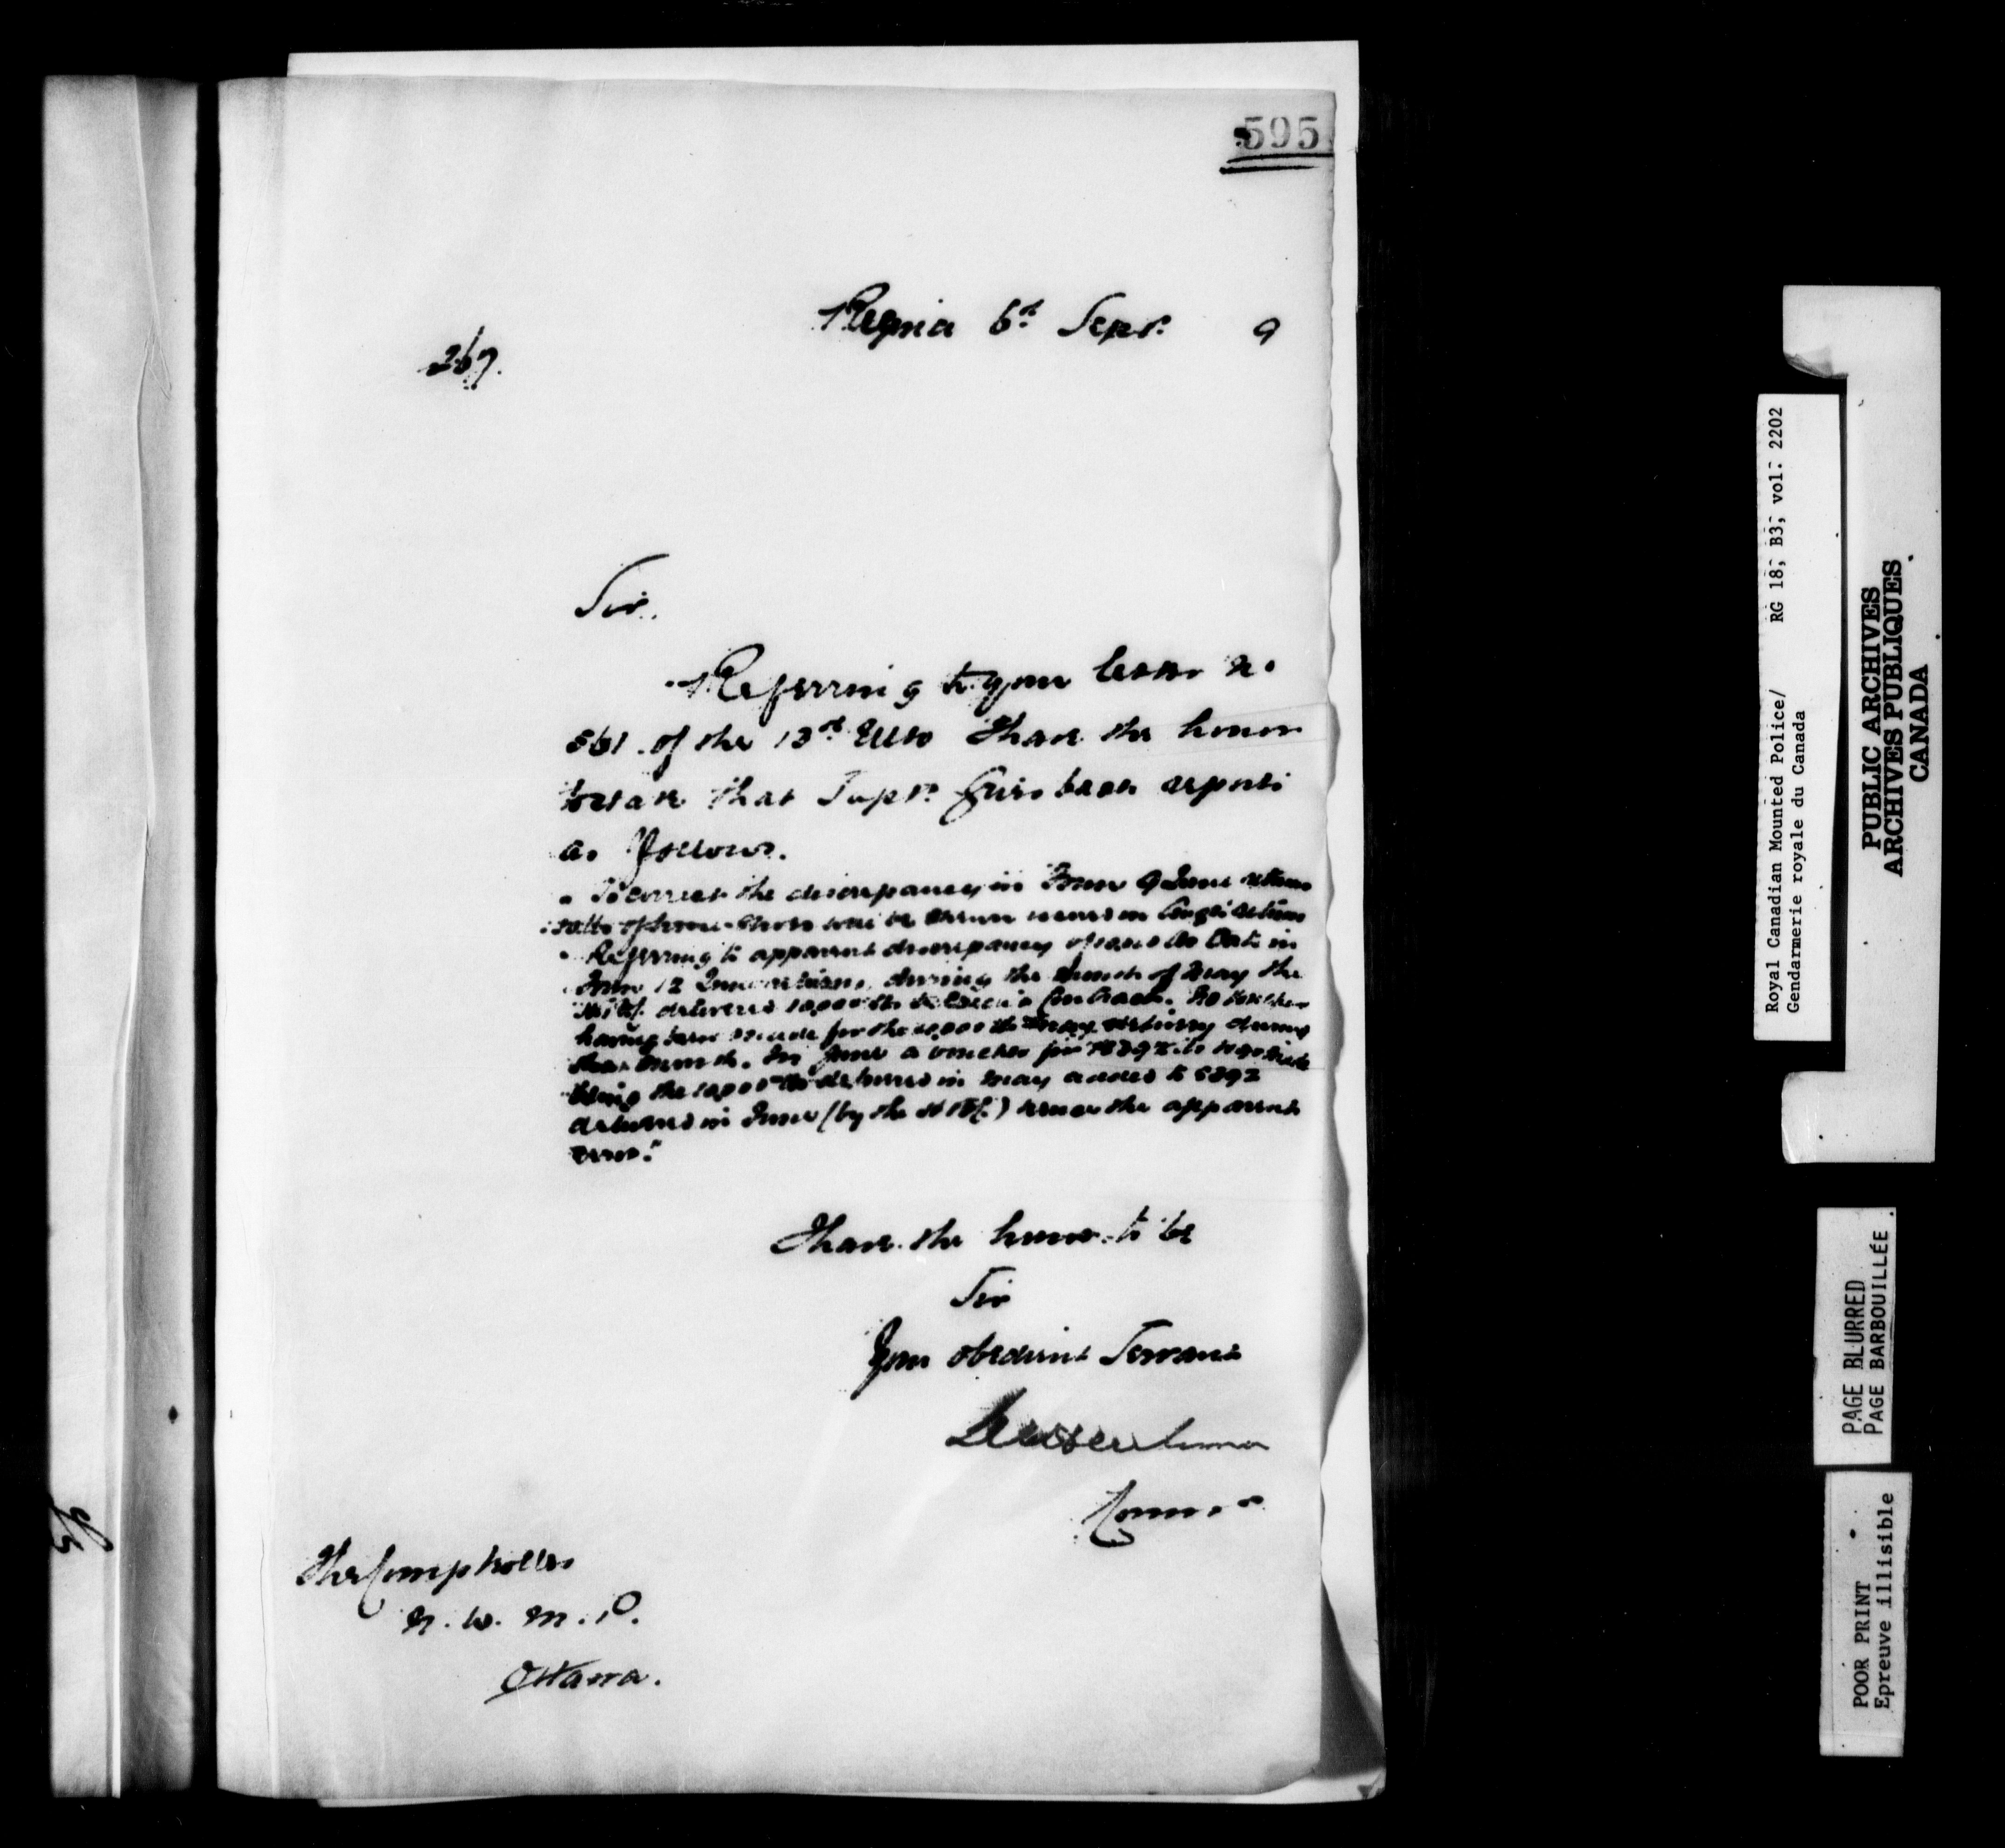 595
Regina 6th Sept. 9
267.
Sir,
Referring to your letter No
561 of the 13th Ulto I have the honor
to state that Supt. reports
as follows.
"To correct the discrepancy in Form 9 June return
of horse shoes will be shown in return
"Referring to apparent discrepancy of Oats in
Form 12 June return, during the month of May the
delivered 10,000 lbs contract. No voucher
having been made for the 10,000 lbs delivery during
that month. In June a voucher for
being the 10,000 lbs delivered in May added to 5392
delivered in June (by the ) hence the apparent
error."
I have the honor to be
Sir
Your obedient Servant
Commr
The Comptroller
N. W. M. P.
Ottawa.
Royal Canadian Mounted Police/ RG 18, B3, vol. 2202
Gendarmerie royale du Canada
PUBLIC ARCHIVES
ARCHIVES PUBLIQUES
CANADA
PAGE BLURRED
PAGE BARBOUILLÉE
POOR PRINT
Epreuve illisible